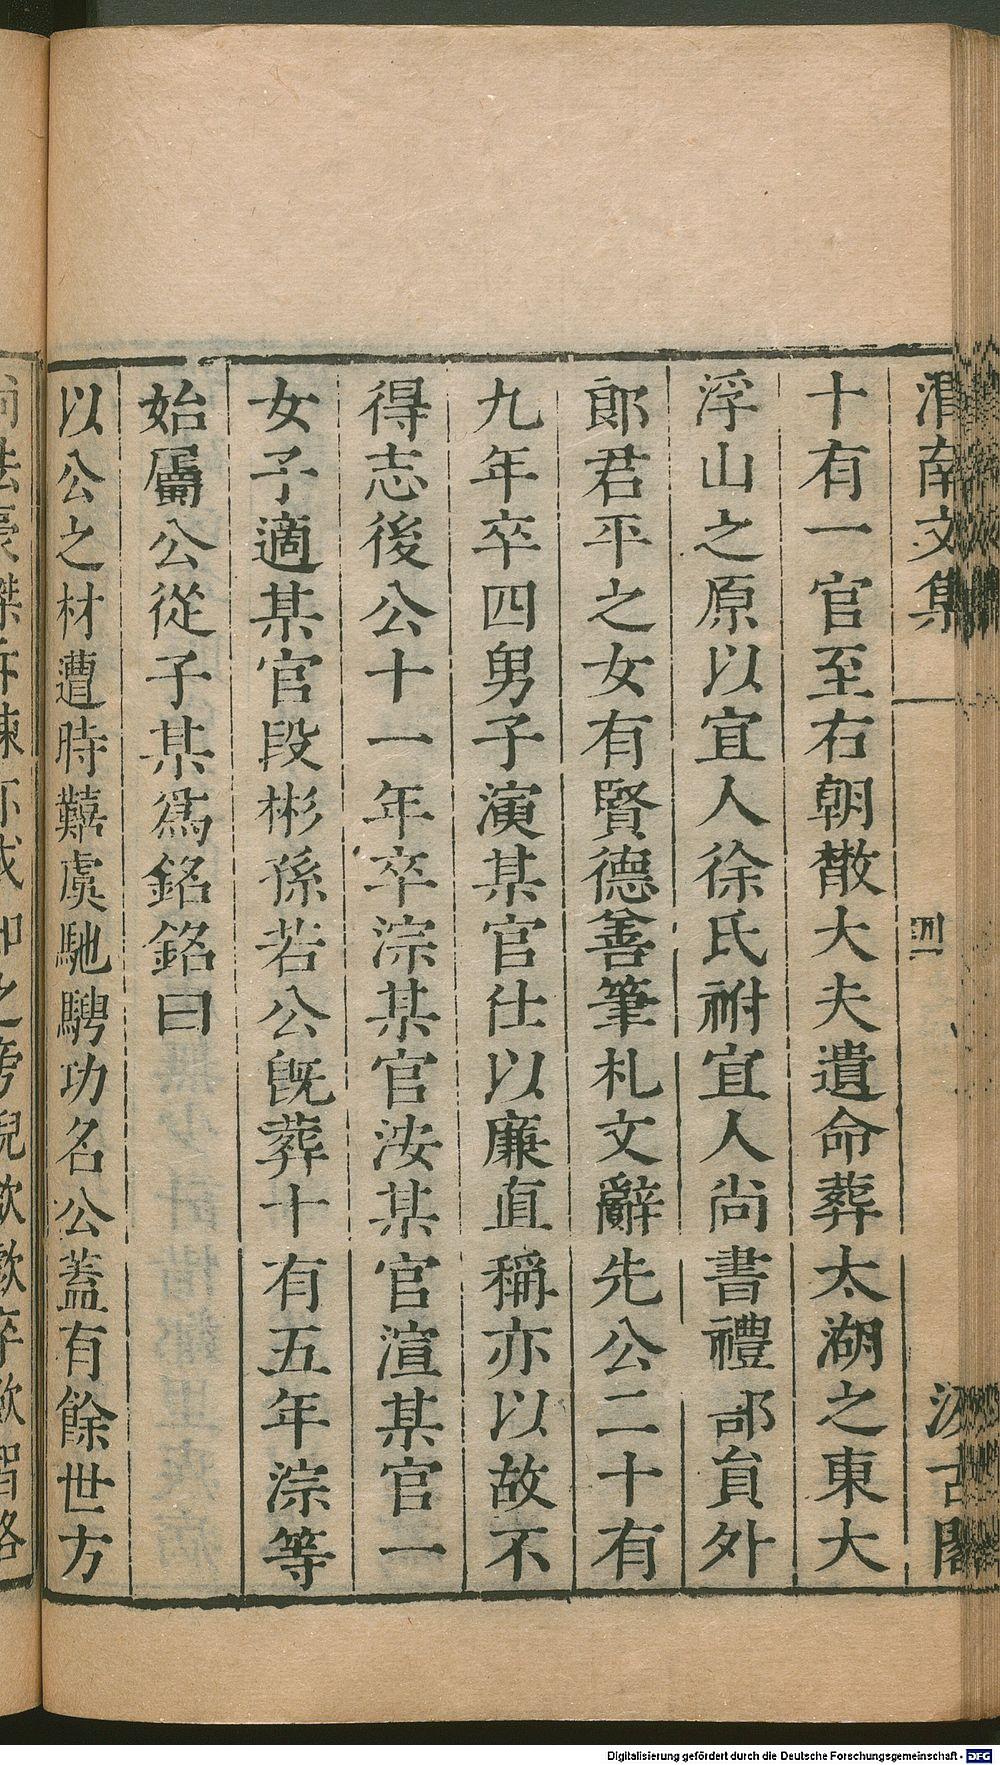 渭南文集 四 汲古閣
十有一官至右朝散大夫遺命葬太湖之東大
浮山之原以宜人徐氏祔宜人尚書禮部員外
郎君平之女有賢德善筆札文辭先公二十有
九年卒四男子演某官仕以廉直稱亦以故不
得志後公十一年卒淙某官洝某官渲某官一
女子適某官段彬孫若公旣葬十有五年淙等
始屬公從子某爲銘銘曰
以公之材遭時囏虞馳騁功名公蓋有餘世方
Digitalisierung gefördert durch die Deutsche Forschungsgemeinschaft - DFG